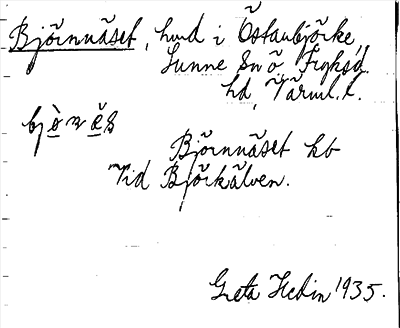 Björnnäset, hmd i Östanbjörke,
Sunne Sn o. Fryksd.
hd, Värml. l.
Björnnäset kb
Vid Björkälven.
Greta Hedin 1935.